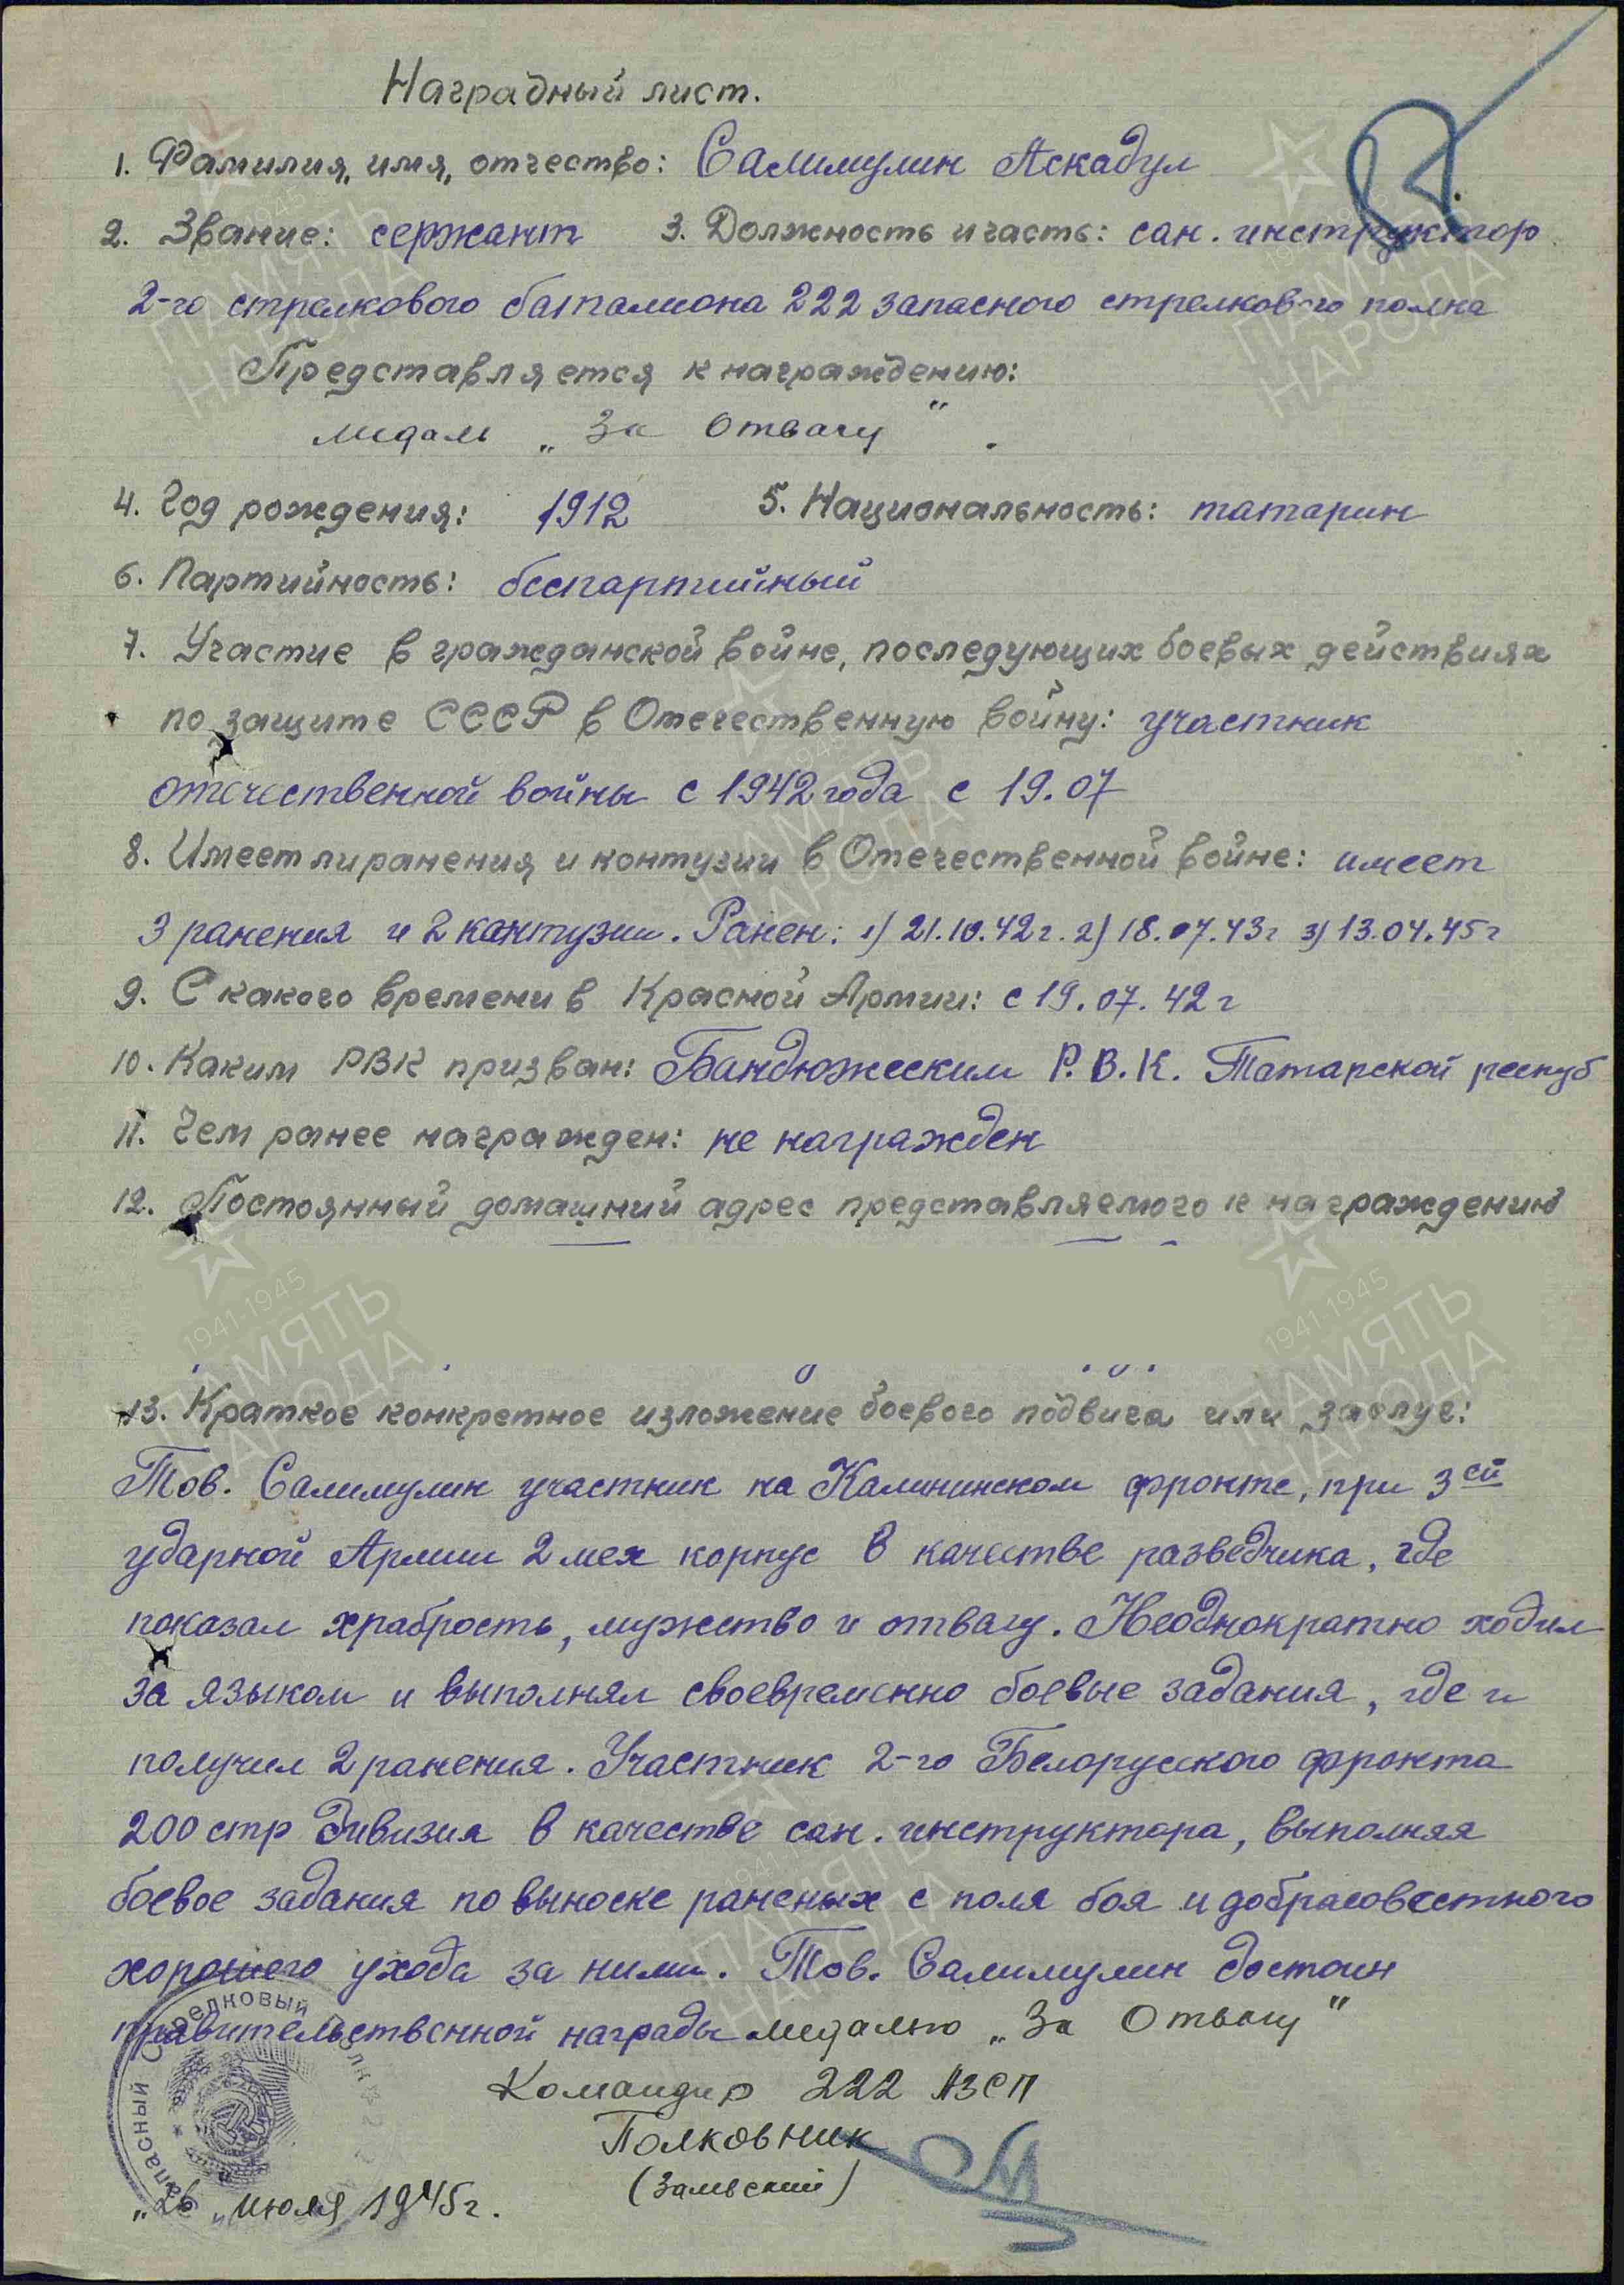 Наградный лист.
1. Фамилия, имя, отчество: Салимулин Аскадул
2. Звание: сержант 3. Должность и часть: сан. инструктор
2-го стрелкового батталиона 222 запасного стрелкового полка
Представляется к награждению:
медаль „За Отвагу".
4. Год рождения: 1912 5. Национальность: татарин
6. Партийность: беспартийный
7. Участие в гражданской войне, последующих боевых действиях
по защите СССР в Отечественную войну: участник
отечественной войны с 1942 года с 19.07
8. Имеет ли ранения и контузии в Отечественной войне: имеет
3 ранения и 2 кантузии. Ранен: 1) 21.10.42г. 2) 18.07.43г 3) 13.04.45г
9. С какого времени в Красной Армии: с 19.07.42г
10. Каким РВК призван: Бандюжеским Р.В.К. Татарской респуб
11. Чем ранее награжден: не награжден
12. Постоянный домашний адрес представляемого к награждению
13. Краткое конкретное изложение боевого подвига или заслуг:
Тов. Салимулин участник на Калининском фронте, при 3ей
ударной Армии 2 мех корпус в качестве разведчика, где
показал храбрость, мужество и отвагу. Неоднократно ходил
за языком и выполнял своевременно боевые задания, где и
получил 2 ранения. Участник 2-го Белорусского фронта
200 стр Дивизия в качестве сан. инструктора, выполняя
боевое задания по выноске раненых с поля боя и добрасовестного
хорошего ухода за ними. Тов. Салимулин достоин
правительственной награды медалью „За Отвагу"
Командир 222 АЗСП
Полковник
„26" июля 1945г.
Запасный Стрелковый
1941-1945
ПАМЯТЬ
НАРОДА